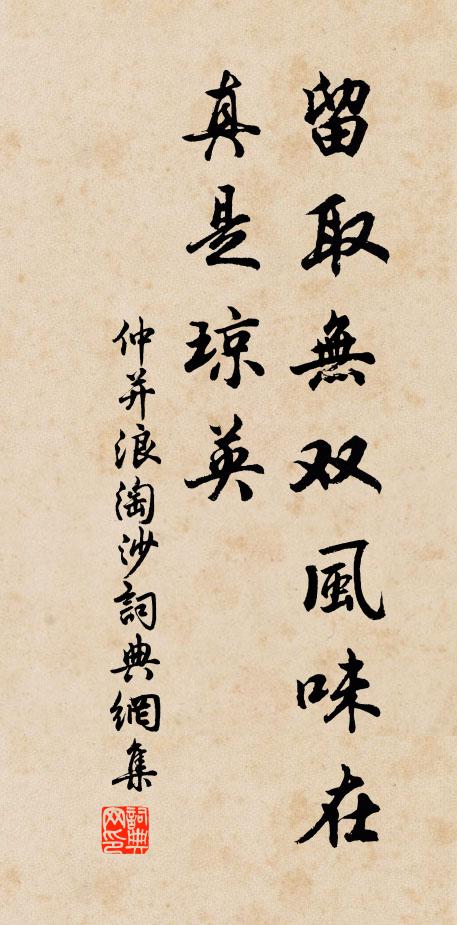 留取無双風味在
真是琼英
仲并浪淘沙詞典網集
詞典网印